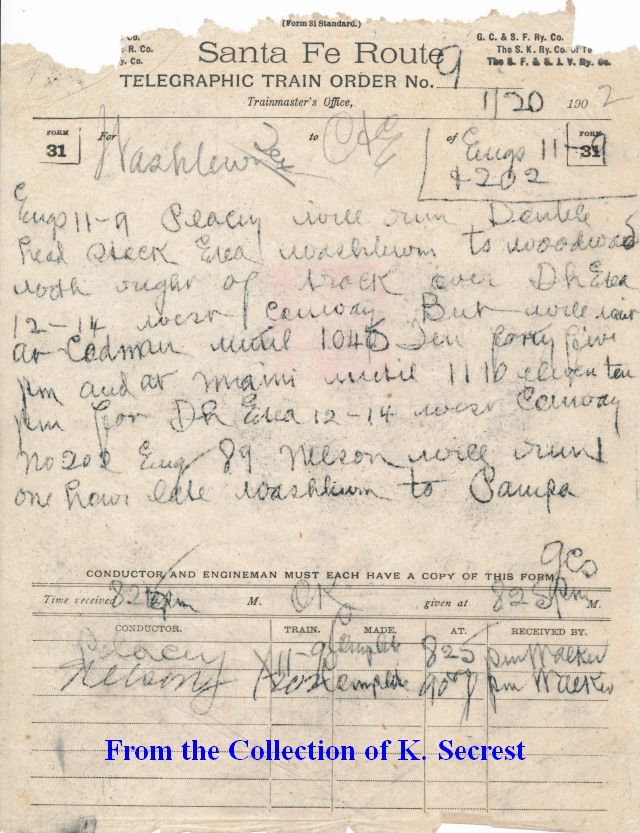 (Form 31 Standard.)
Co.
R. Co.
y. Co.
G. C. & S. F. Ry. Co.
The S. K. Ry. Co. of Te
The S. F. & S. J. V. Ry. Co.
Santa Fe Route
TELEGRAPHIC TRAIN ORDER No. 9
Trainmaster's Office, 1/20 1902
FORM 31
For Washburn Tex to C&E of Engs 11-9
& 202
FORM 31
Engs 11-9 Peacey will run Double
head stock Extra Washburn to Woodward
with right of track over Dh Extra
12-14 west Conway But will wait
at Codman until 1045 Ten forty five
pm and at Miami until 1110 eleven ten
pm for Dh Extra 12-14 west Conway
No 202 Eng 89 Nelson will run 1
one hour late Washburn to Pampa
CONDUCTOR AND ENGINEMAN MUST EACH HAVE A COPY OF THIS FORM.
Time received pm M. OK given at 825 pm M.
CONDUCTOR. TRAIN. MADE. AT. RECEIVED BY.
Peacey 11-9 Complete 825 pm Walker
Nelson Complete 907 pm Walker
From the Collection of K. Secrest